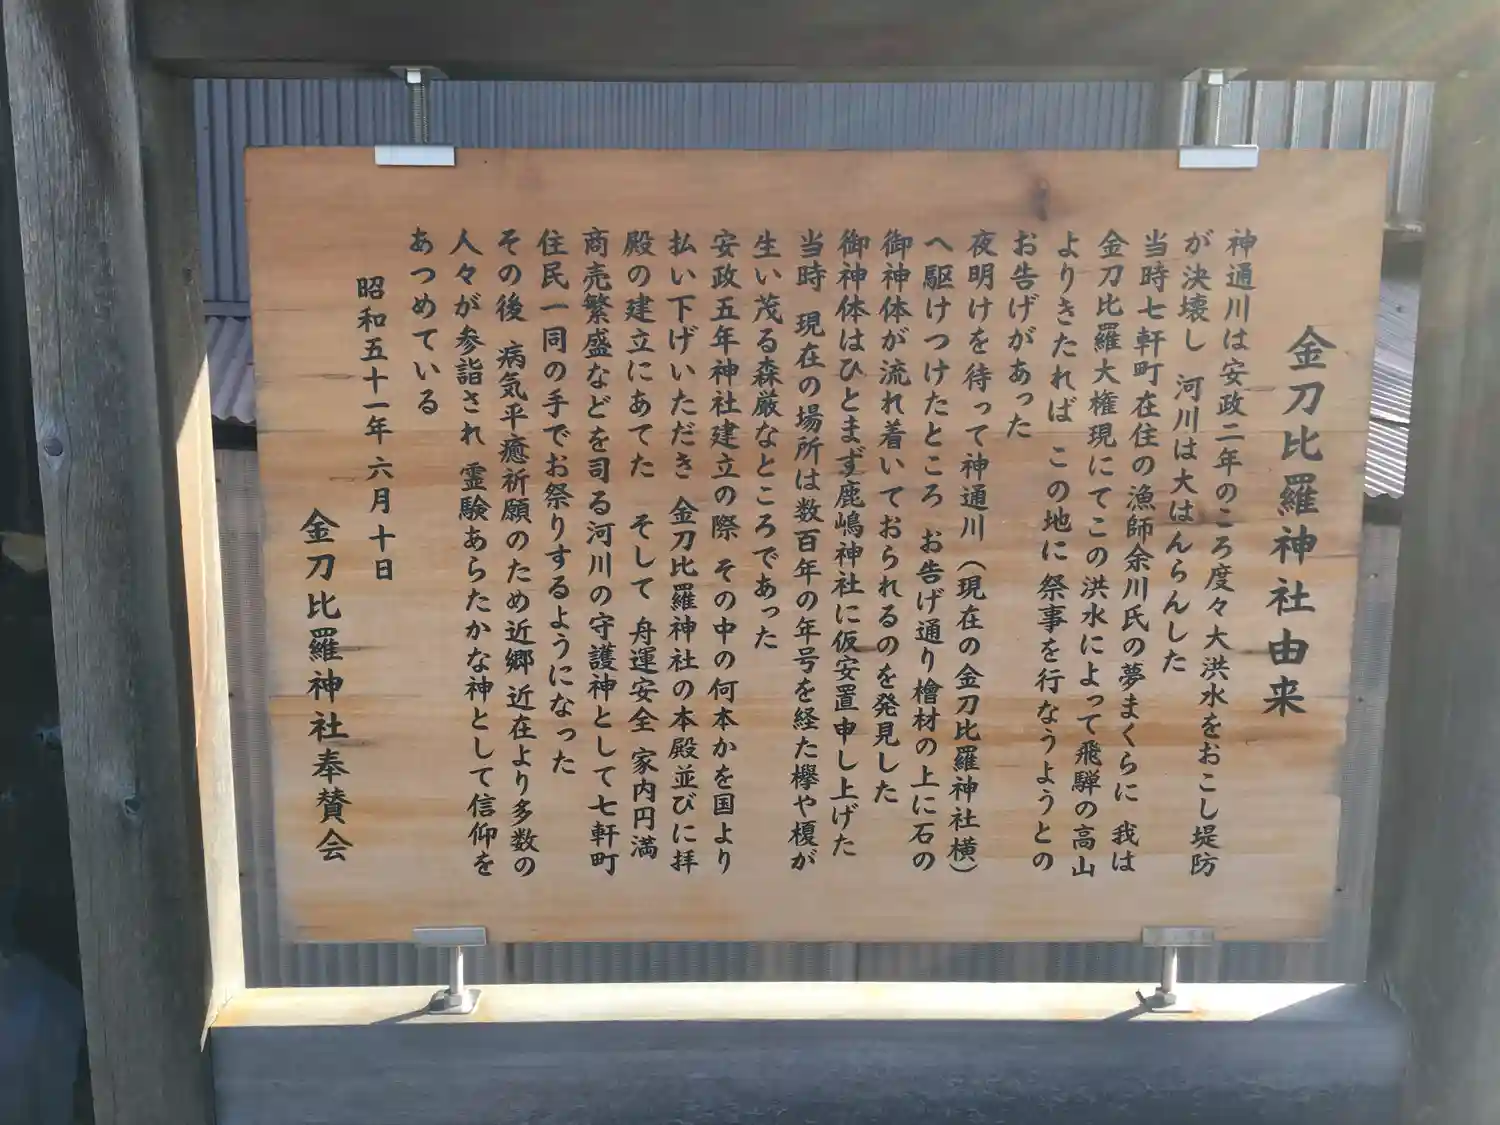 金刀比羅神社由来
神通川は安政二年のころ度々大洪水をおこし堤防
が決壊し 河川は大はんらんした
当時七軒町在住の漁師余川氏の夢まくらに 我は
金刀比羅大権現にてこの洪水によって飛騨の高山
よりきたれば この地に 祭事を行なうようとの
お告げがあった
夜明けを待って神通川(現在の金刀比羅神社横)
へ駆けつけたところ お告げ通り檜材の上に石の
御神体が流れ着いておられるのを発見した
御神体はひとまず鹿嶋神社に仮安置申し上げた
当時 現在の場所は数百年の年号を経た欅や榎が
生い茂る森厳なところであった
安政五年神社建立の際 その中の何本かを国より
払い下げいただき 金刀比羅神社の本殿並びに拝
殿の建立にあてた そして 舟運安全 家内円満
商売繁盛などを司る河川の守護神として七軒町
住民一同の手でお祭りするようになった
その後 病気平癒祈願のため近郷近在より多数の
人々が参詣され 霊験あらたかな神として信仰を
あつめている
昭和五十一年 六月 十日
金刀比羅神社奉賛会